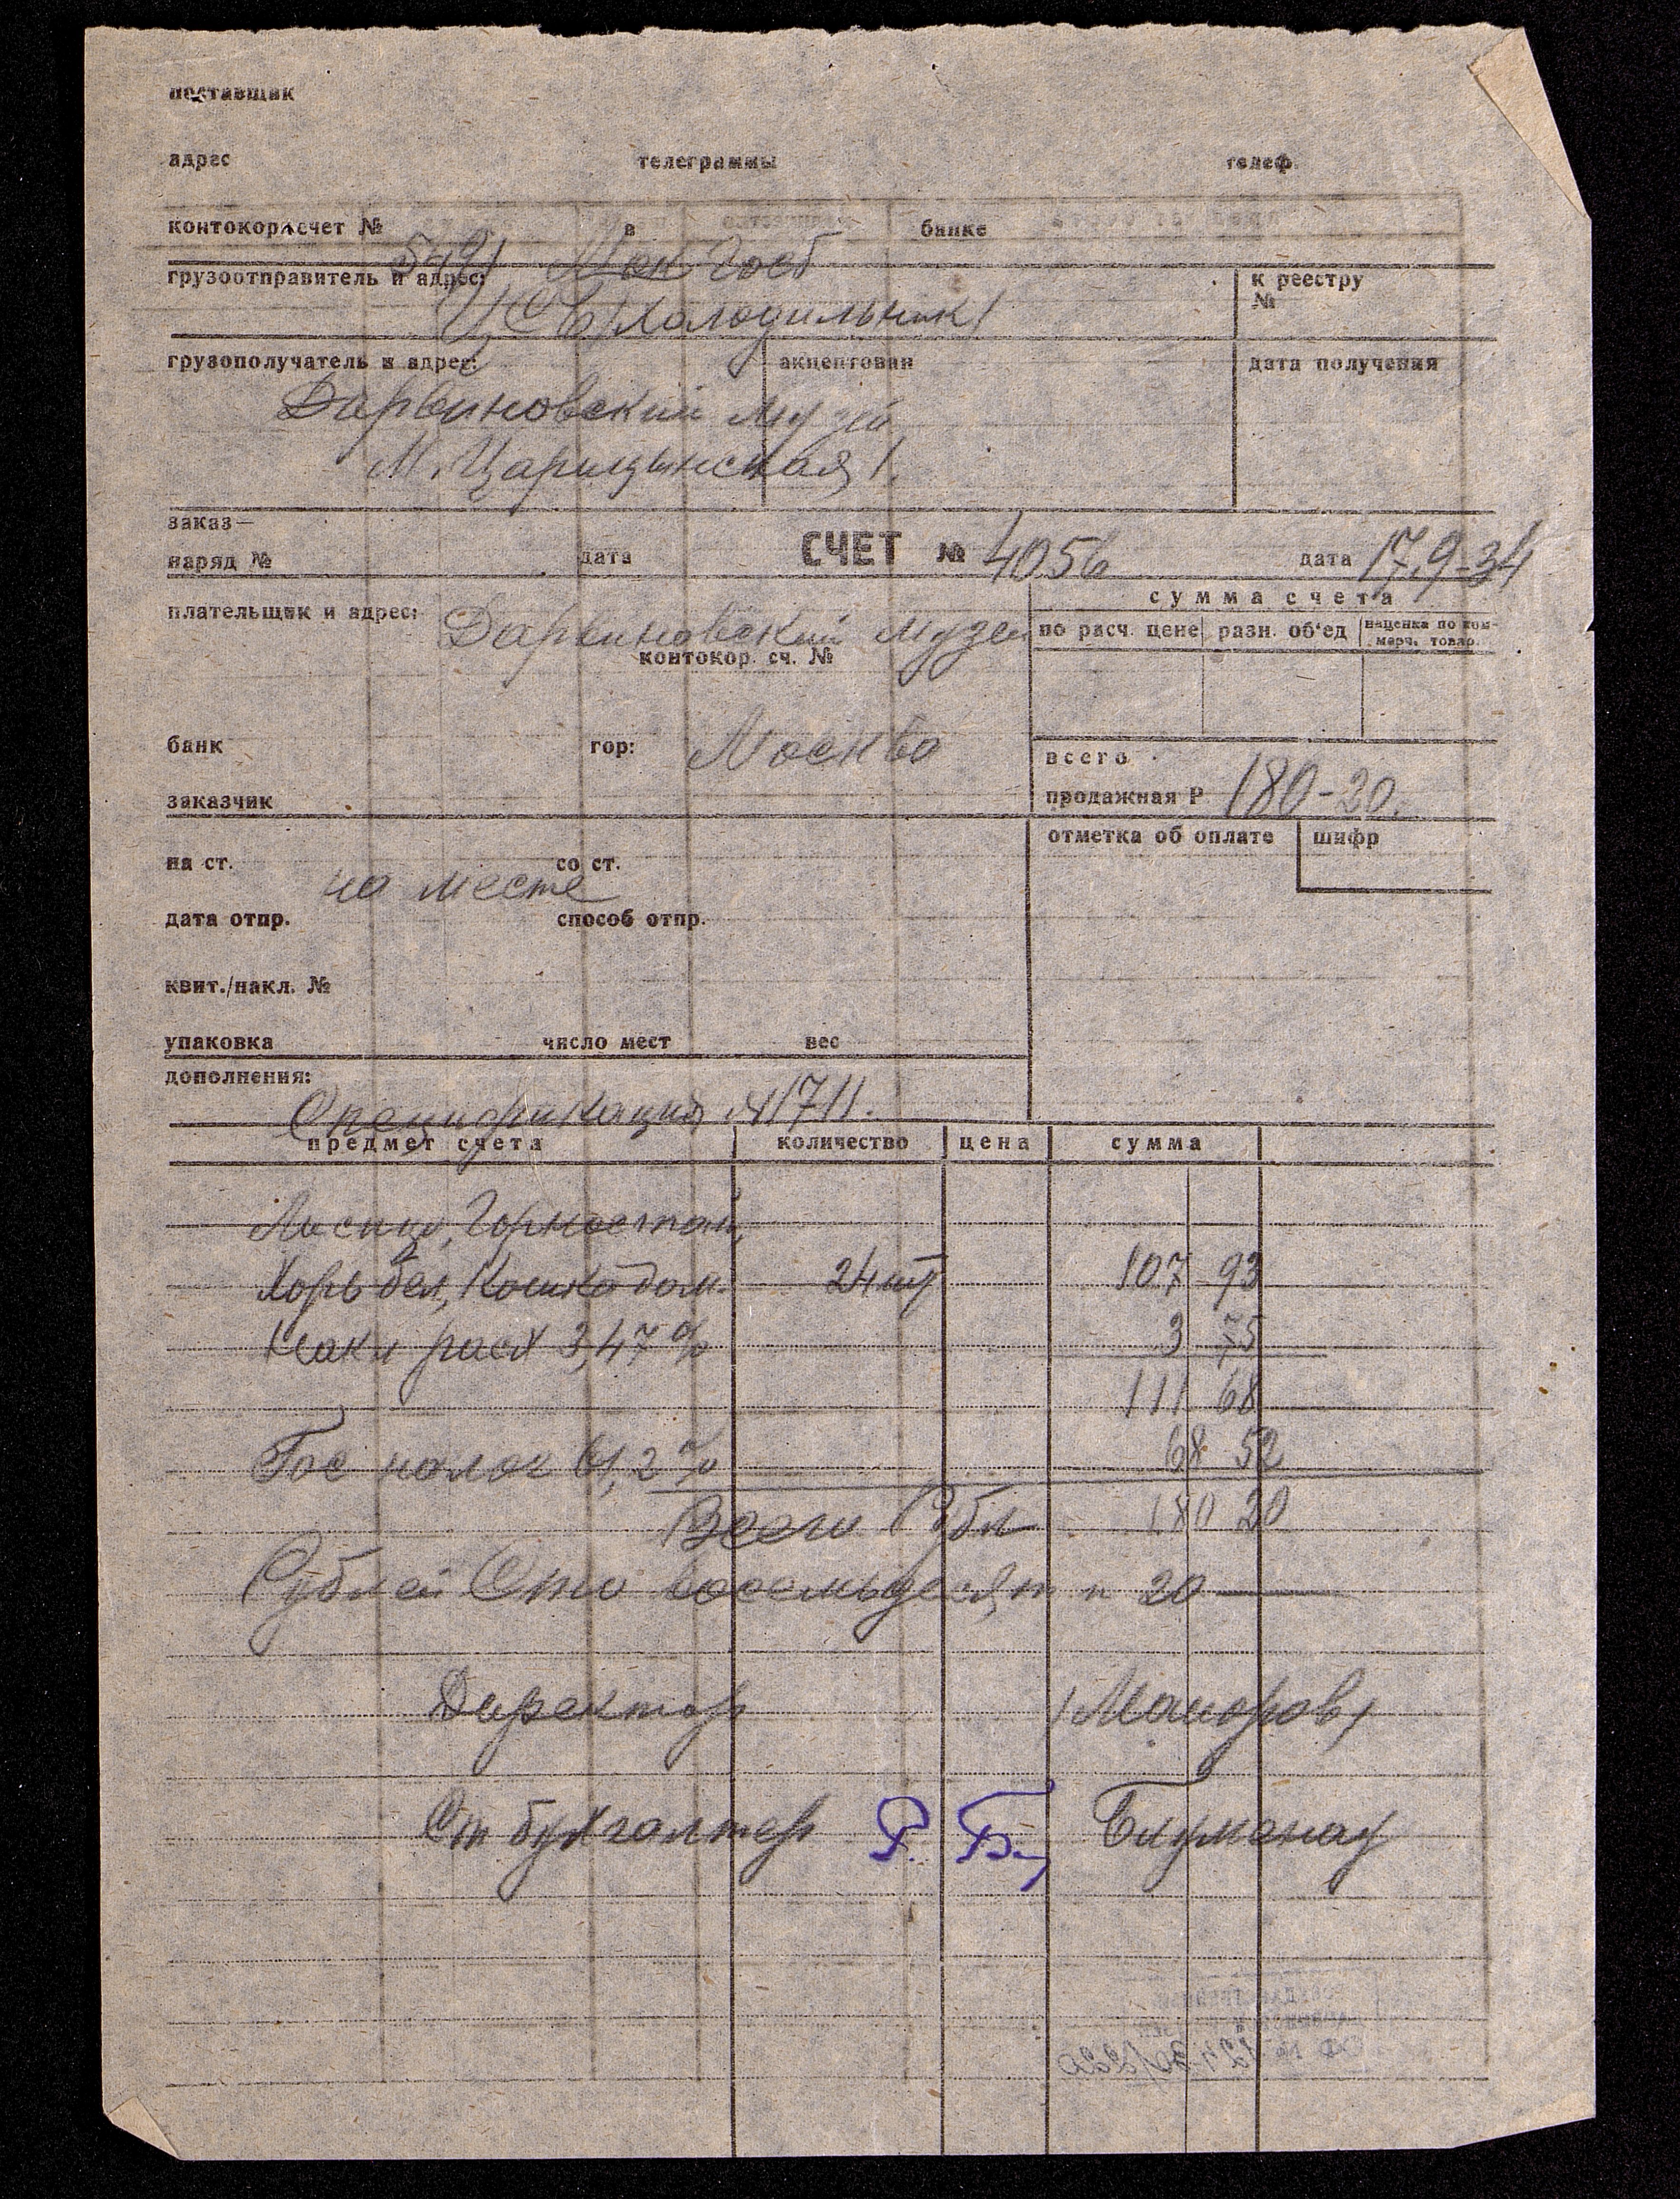 поставщик
адрес телеграммы телеф.
контокор. счет № в банке
Мск Госб
грузоотправитель и адрес: к реестру
№
/Холодильник/
грузополучатель и адрес: акцептован дата получения
Дарвиновский музей
М. Царицынская 1.
заказ—
наряд № дата СЧЕТ № 4056 дата 17.9-34
сумма счета
плательщик и адрес: Дарвиновский музей по расч. цене разн. об'ед наценка по ком-
мерч. товар.
контокор. сч. №
банк гор: Москва всего
заказчик продажная Р 180-20.
отметка об оплате шифр
на ст. со ст.
на месте
дата отпр. способ отпр.
квит./накл. №
упаковка число мест вес
дополнения:
Спецификация № 1711.
предмет счета количество цена сумма
Лисица, Горностай,
Хорь бел, Кошка дом. 24 шт 107 93
Накл расх 3,47% 3 75
111 68
Гос налог 61,2% 68 52
Всего Рубл 180 20
Рублей Сто восемьдесят п 20
Директор /Маиоров/
Ст бухгалтер Р. Б.